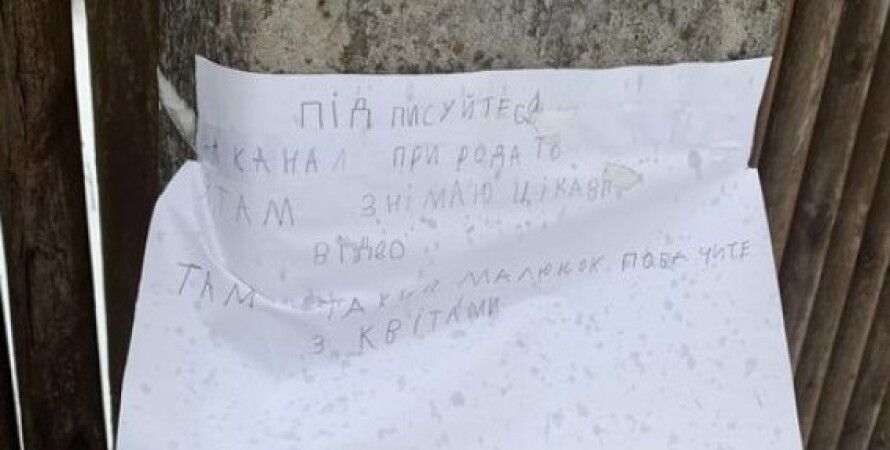 ПІДПИСУЙТЕСЯ
КАНАЛ ПРИРОДА ТО
ТАМ ЗНІМАЮ ЦІКАВІ
ВІДЕО
ТАМ ТАКИЙ МАЛЮНОК ПОБАЧИТЕ
З КВІТАМИ